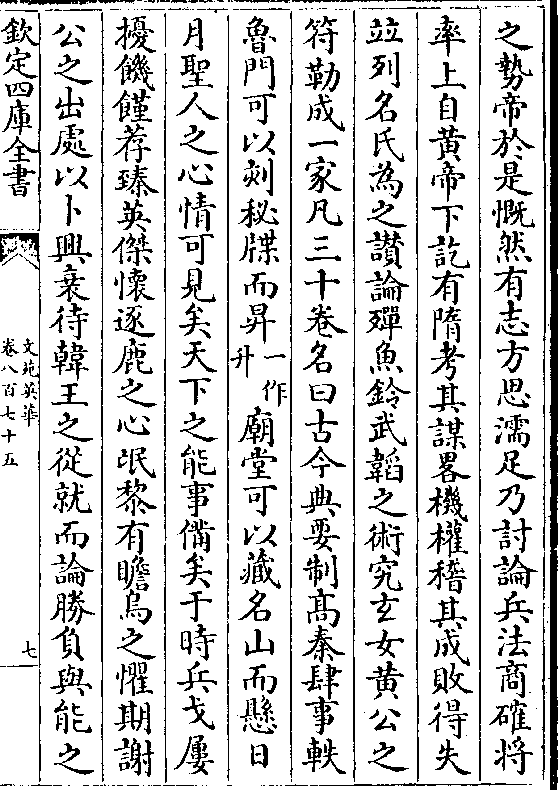 之勢帝於是慨然有志方思濡足乃討論兵法商確将
率上自黄帝下訖有隋考其謀畧機權稽其成敗得失
竝列名氏為之讃論殫魚鈐武韜之術究玄女黄公之
符勒成一家凡三十卷名曰古今典要制髙秦肆事軼
魯門可以刻秘牒而昇一作升廟堂可以藏名山而懸日
月聖人之心情可見矣天下之能事備矣于時兵戈屢
擾饑饉荐臻英傑懷逐鹿之心氓黎有瞻烏之懼期謝
公之出處以卜興衰待韓王之從就而論勝負與能之
欽定四庫全書
文苑英華
卷八百七十五
七